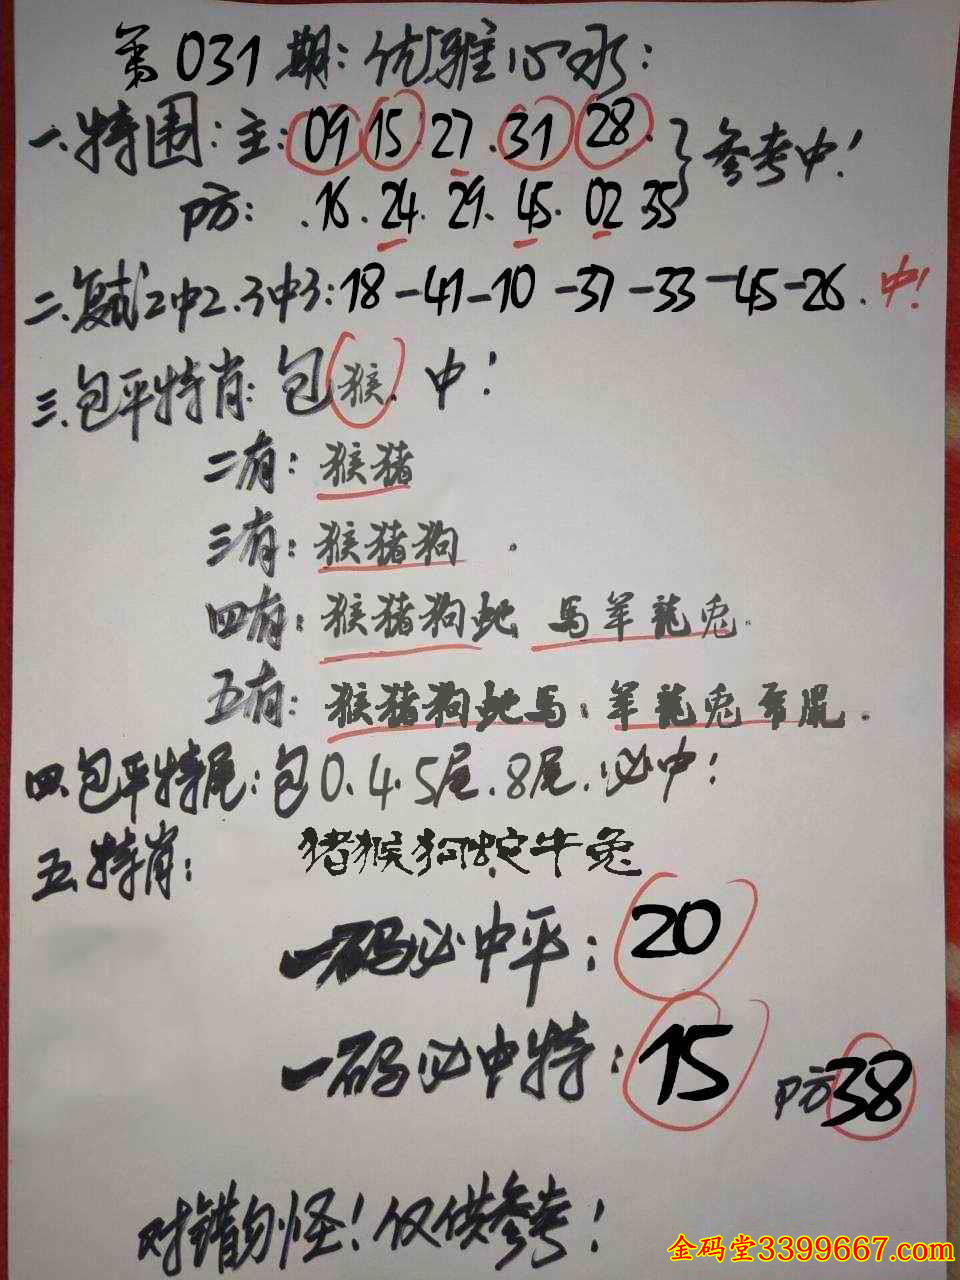 第031期:优雅心水:
一.特围:主:09 15 27.31 28.
防:.16.24.29.45.02 35 } 参考中!
二.复式2中2.3中3:18-41-10-37-33-45-26.中!
三.包平特肖:包猴.中!
二有:猴猪
三有:猴猪狗.
四有:猴猪狗蛇 马羊龍兎.
五有:猴猪狗蛇马:羊龍兎 鼠.
四.包平特尾:包0.4.5尾.8尾.必中!
五.特肖:猪猴狗蛇牛兔
一码必中平:20
一码必中特:15 防38
对错勿怪!仅供参考!
金码堂3399667.com